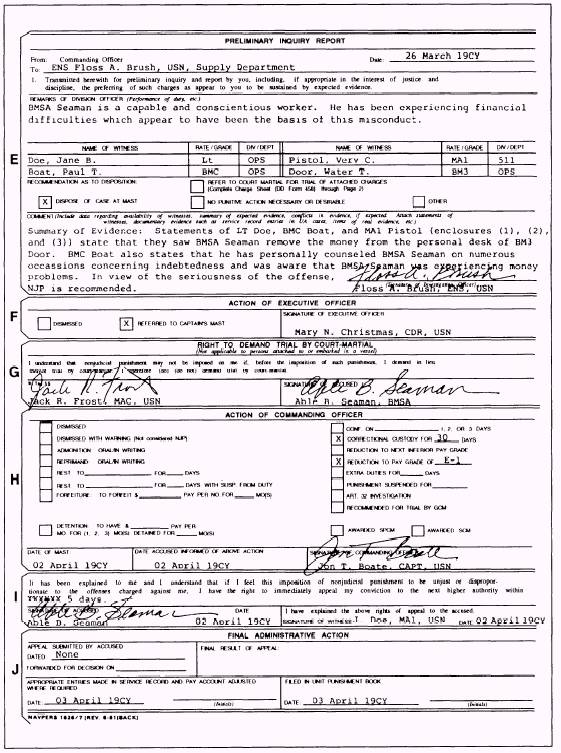 PRELIMINARY INQUIRY REPORT
From: Commanding Officer Date: 26 March 19CY
To: ENS Floss A. Brush, USN, Supply Department
1. Transmitted herewith for preliminary inquiry and report by you, including, if appropriate in the interest of justice and
discipline, the preferring of such charges as appear to you to be sustained by expected evidence.
REMARKS OF DIVISION OFFICER (Performance of duty, etc.)
BMSA Seaman is a capable and conscientious worker. He has been experiencing financial
difficulties which appear to have been the basis of this misconduct.
E
NAME OF WITNESS RATE/GRADE DIV/DEPT NAME OF WITNESS RATE/GRADE DIV/DEPT
Doe, Jane B. Lt OPS Pistol, Very C. MA1 511
Boat, Paul T. BMC OPS Door, Water T. BM3 OPS
RECOMMENDATION AS TO DISPOSITION: REFER TO COURT MARTIAL FOR TRIAL OF ATTACHED CHARGES
(Complete Charge Sheet (DD Form 458) through Page 2)
X DISPOSE OF CASE AT MAST NO PUNITIVE ACTION NECESSARY OR DESIRABLE OTHER
COMMENT (Include data regarding availability of witnesses, summary of expected evidence, conflicts in evidence, if expected. Attach statements of
witnesses, documentary evidence such as service record entries in UA cases, items of real evidence, etc.)
Summary of Evidence: Statements of LT Doe, BMC Boat, and MA1 Pistol (enclosures (1), (2),
and (3)) state that they saw BMSA Seaman remove the money from the personal desk of BM3
Door. BMC Boat also states that he has personally counseled BMSA Seaman on numerous
occassions concerning indebtedness and was aware that BMSA Seaman was experiencing money
problems. In view of the seriousness of the offense, Floss A. Brush
NJP is recommended. Floss A. Brush, ENS, USN
ACTION OF EXECUTIVE OFFICER
F
DISMISSED X REFERRED TO CAPTAIN'S MAST SIGNATURE OF EXECUTIVE OFFICER
Mary N. Christmas, CDR, USN
RIGHT TO DEMAND TRIAL BY COURT-MARTIAL
(Not applicable to persons attached to or embarked in a vessel)
G
I understand that nonjudicial punishment may not be imposed on me if, before the imposition of such punishment, I demand in lieu
thereof trial by court-martial. I therefore (do) (do not) demand trial by court-martial.
WITNESS SIGNATURE OF ACCUSED
Jack R. Frost Able B. Seaman
Jack R. Frost, MAC, USN Able B. Seaman, BMSA
ACTION OF COMMANDING OFFICER
H
DISMISSED CONF. ON 1, 2, OR 3 DAYS
DISMISSED WITH WARNING (Not considered NJP) X CORRECTIONAL CUSTODY FOR 30 DAYS
ADMONITION: ORAL/IN WRITING REDUCTION TO NEXT INFERIOR PAY GRADE
REPRIMAND: ORAL/IN WRITING X REDUCTION TO PAY GRADE OF E-1
REST. TO FOR DAYS EXTRA DUTIES FOR DAYS
REST. TO FOR DAYS WITH SUSP. FROM DUTY PUNISHMENT SUSPENDED FOR
FORFEITURE: TO FORFEIT $ PAY PER MO. FOR MO(S) ART. 32 INVESTIGATION
RECOMMENDED FOR TRIAL BY GCM
DETENTION: TO HAVE $ PAY PER
MO. FOR (1, 2, 3) MO(S) DETAINED FOR MO(S) AWARDED SPCM AWARDED SCM
DATE OF MAST DATE ACCUSED INFORMED OF ABOVE ACTION SIGNATURE OF COMMANDING OFFICER
Jon T. Boate
02 April 19CY 02 April 19CY Jon T. Boate, CAPT, USN
I
It has been explained to me and I understand that if I feel this imposition of nonjudicial punishment to be unjust or dispropor-
tionate to the offenses charged against me, I have the right to immediately appeal my conviction to the next higher authority within
5 days.
SIGNATURE OF ACCUSED DATE I have explained the above rights of appeal to the accused.
Able B. Seaman
Able B. Seaman 02 April 19CY SIGNATURE OF WITNESS I. Doe, MA1, USN DATE 02 April 19CY
FINAL ADMINISTRATIVE ACTION
J
APPEAL SUBMITTED BY ACCUSED FINAL RESULT OF APPEAL
DATED None
FORWARDED FOR DECISION ON
APPROPRIATE ENTRIES MADE IN SERVICE RECORD AND PAY ACCOUNT ADJUSTED FILED IN UNIT PUNISHMENT BOOK
WHERE REQUIRED
DATE: 03 April 19CY (Initials) DATE: 03 April 19CY (Initials)
NAVPERS 1626/7 (REV. 8-81) (BACK)